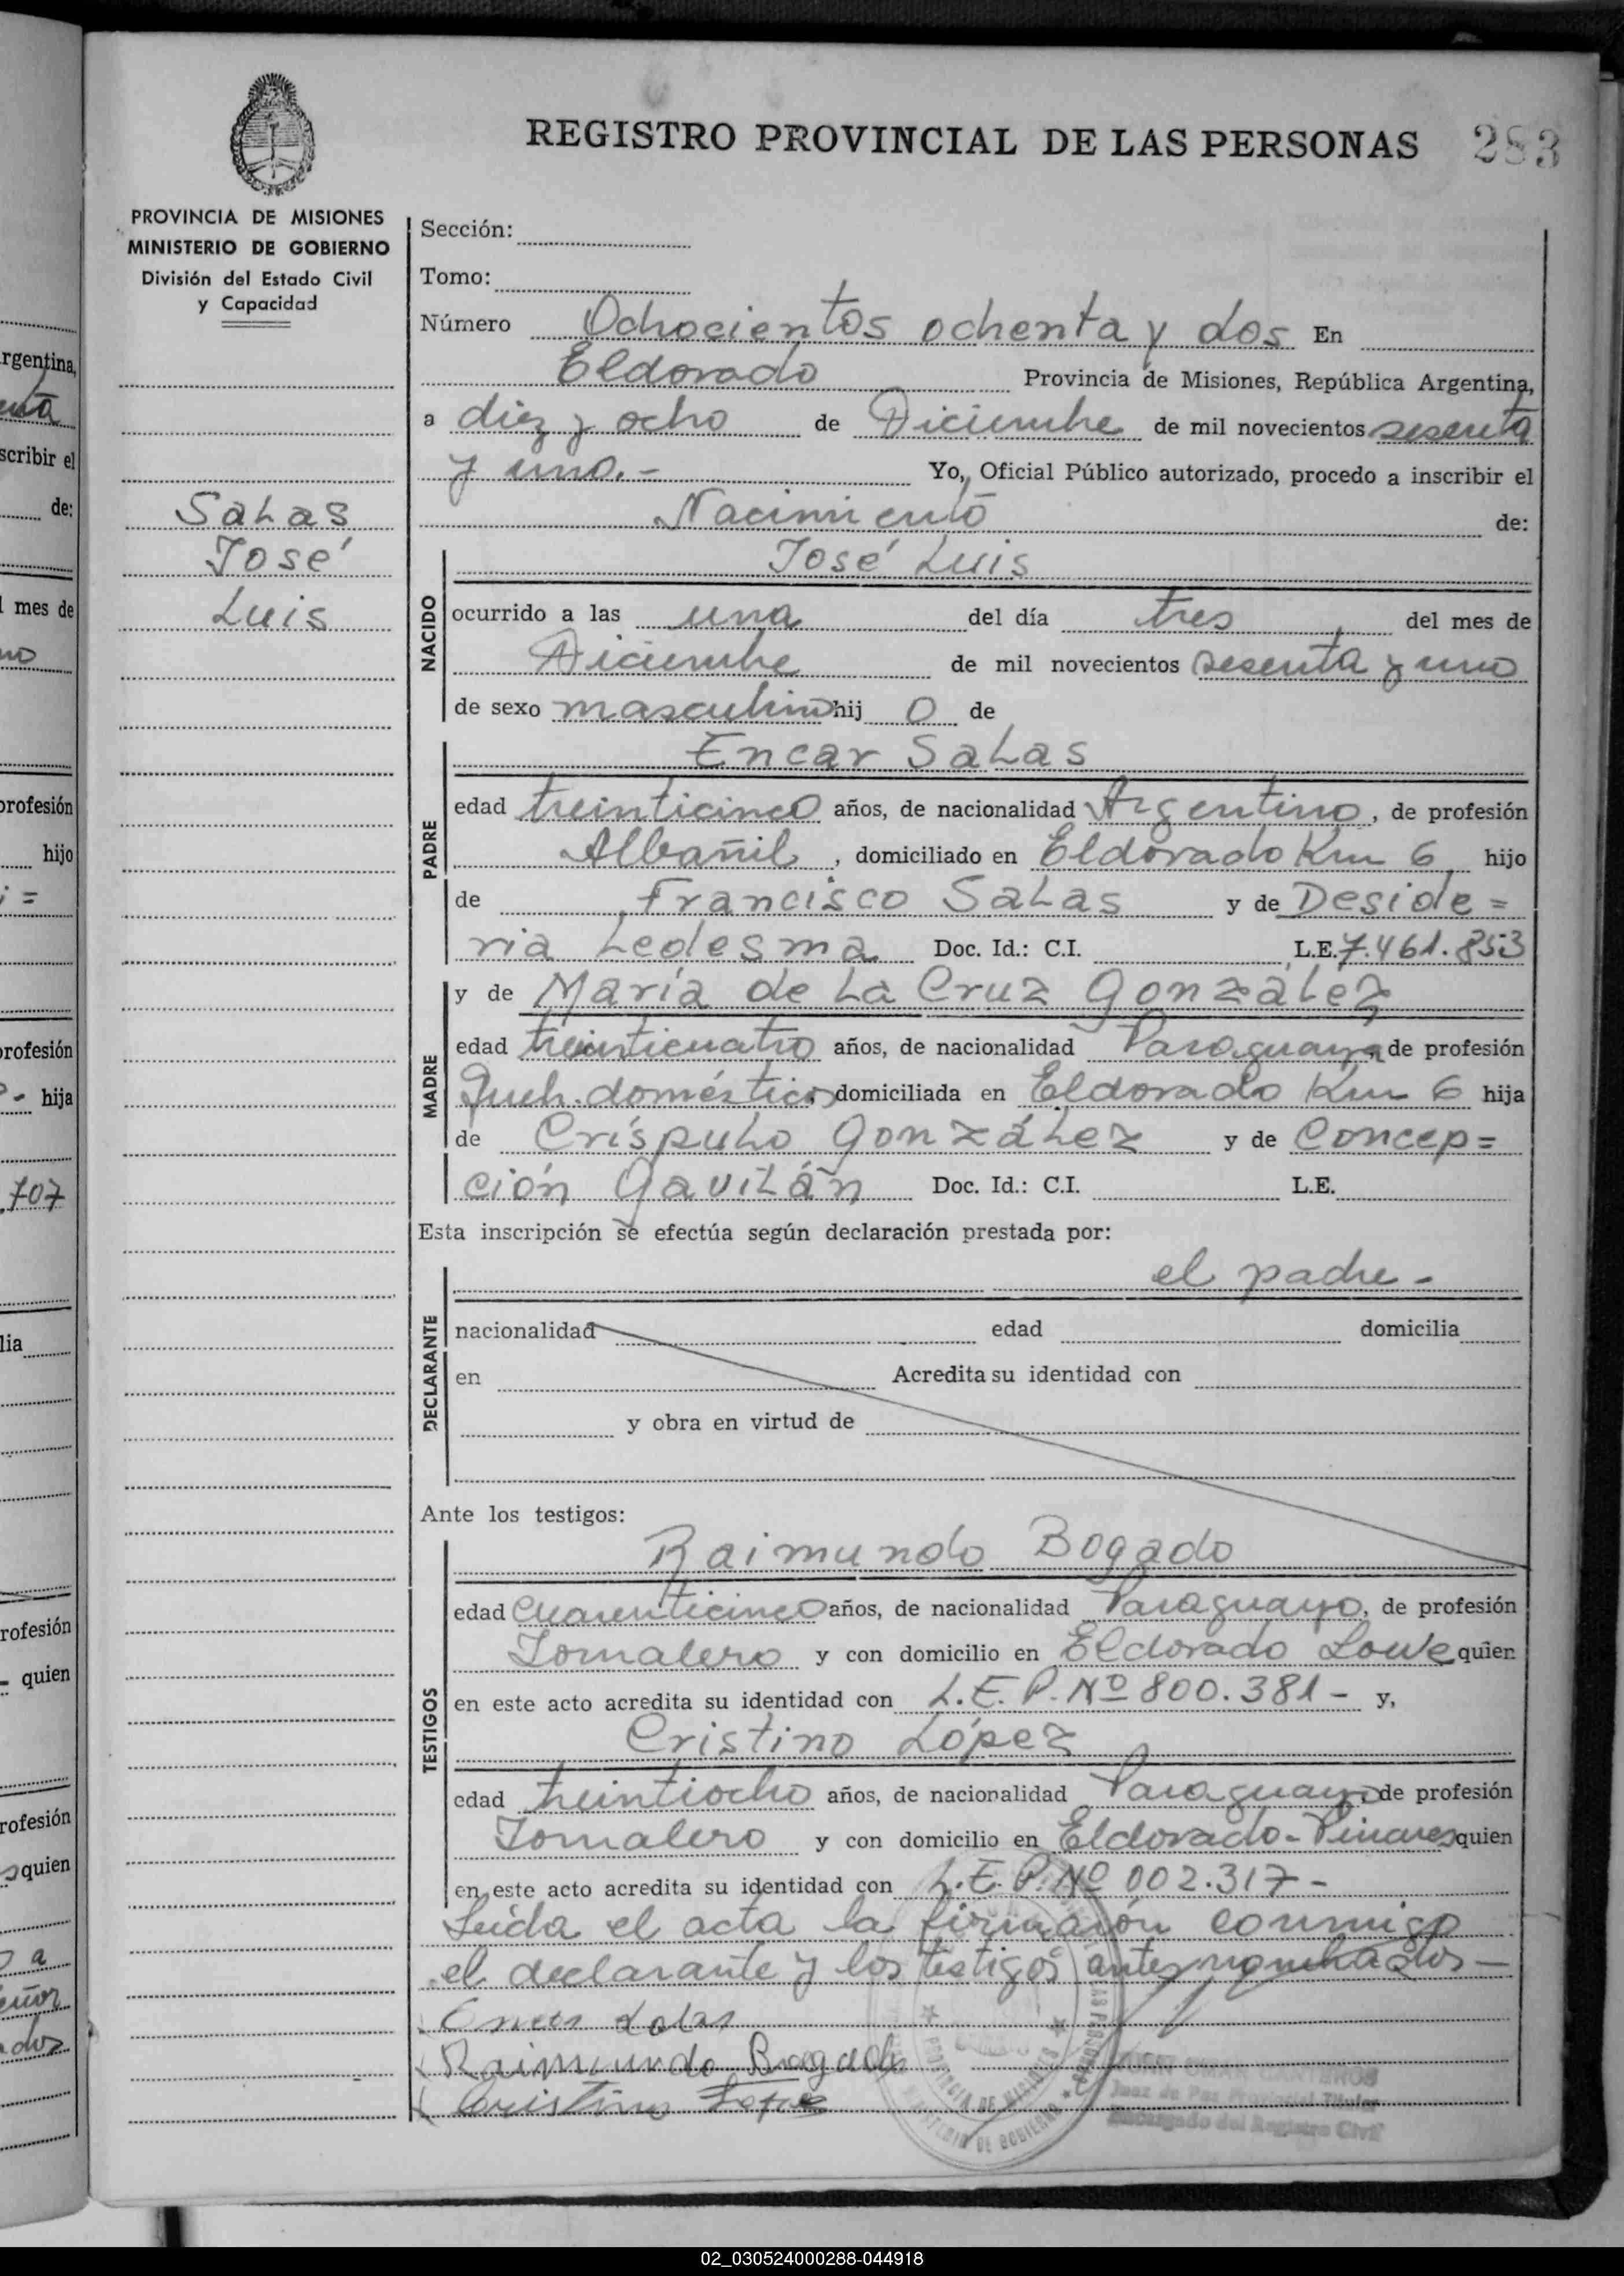 REGISTRO PROVINCIAL DE LAS PERSONAS 283
PROVINCIA DE MISIONES
MINISTERIO DE GOBIERNO
División del Estado Civil
y Capacidad
Salas
José
Luis
Sección:
Tomo:
Número Ochocientos ochenta y dos En
Eldorado Provincia de Misiones, República Argentina,
a diez y ocho de Diciembre de mil novecientos sesenta
y uno.- Yo, Oficial Público autorizado, procedo a inscribir el
Nacimiento de:
NACIDO
José Luis
ocurrido a las una del día tres del mes de
Diciembre de mil novecientos sesenta y uno
de sexo masculino hij o de
PADRE
Encar Salas
edad treinticinco años, de nacionalidad Argentino, de profesión
Albañil, domiciliado en Eldorado Km 6 hijo
de Francisco Salas y de Deside=
ria Ledesma Doc. Id.: C.I. L.E. 7.461.853
MADRE
y de María de La Cruz González
edad treinticuatro años, de nacionalidad Paraguaya de profesión
Queh. domésticos domiciliada en Eldorado Km 6 hija
de Críspulo González y de Concep=
ción Gavilán Doc. Id.: C.I. L.E.
Esta inscripción se efectúa según declaración prestada por:
DECLARANTE
el padre -
nacionalidad edad domicilia
en Acredita su identidad con
y obra en virtud de
Ante los testigos:
TESTIGOS
Raimundo Bogado
edad cuarenticinco años, de nacionalidad Paraguayo, de profesión
Jornalero y con domicilio en Eldorado quien
en este acto acredita su identidad con L.E.P. Nº 800.381 - y,
Cristino López
edad treintiocho años, de nacionalidad Paraguayo, de profesión
Jornalero y con domicilio en Eldorado - Pinares quien
en este acto acredita su identidad con L.E.P. Nº 002.317 -
Leída el acta la firmarón conmigo
el declarante y los testigos antes nombrados -
Salas
Raimundo Bogado
Cristino Lopez
PROVINCIA DE MISIONES
MINISTERIO DE GOBIERNO
OMAR CANTEROS
Juez de Paz Provincial Titular
Encargado del Registro Civil
rgentina,
scribir el
de:
l mes de
rofesión
hijo
rofesión
hija
707
lia
rofesión
quien
rofesión
quien
02_030524000288-044918